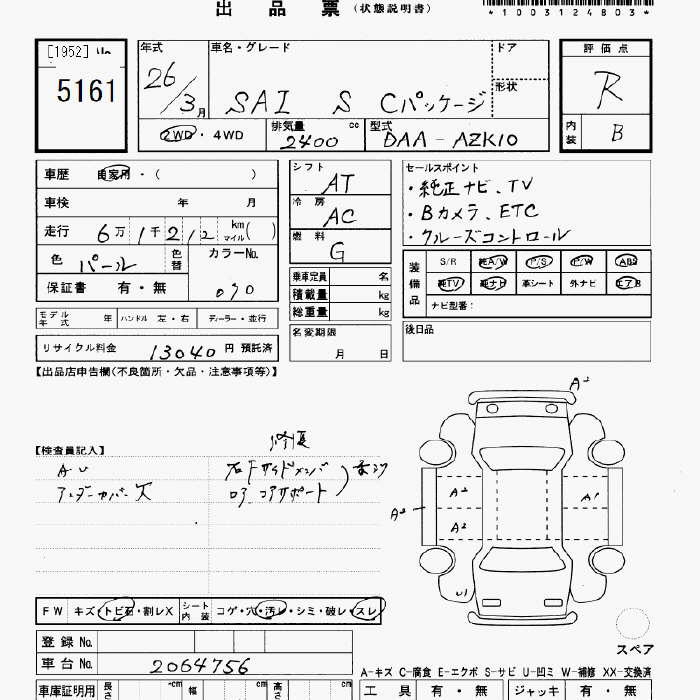 出品票（状態説明書）
*1003124803*
[1952]
5161
年式
26/3月
車名・グレード
SAI S Cパッケージ
ドア
形状
2WD・4WD
排気量 cc
2400
型式
DAA-AZK10
評価点
R
内装 B
車歴 自家用・（ ）
車検 年 月
走行 6万1千212 km マイル( )
色 パール 色替
カラーNo.
070
保証書 有・無
シフト AT
冷房 AC
燃料 G
乗車定員 名
積載量 kg
総重量 kg
セールスポイント
・純正ナビ、TV
・Bカメラ、ETC
・クルーズコントロール
装備品
S/R 純A/W P/S P/W ABS
純TV 純ナビ 革シート 外ナビ エアB
ナビ型式：
モデル年式 年 ハンドル 左・右 ディーラー・並行
名変期限
月 日
後日品
リサイクル料金 13040 円 預託済
【出品店申告欄(不良箇所・欠品・注意事項等)】
A2
【検査員記入】
修復
AU
アンダーカバーズ
右Fサイドメンバ
ロア コアサポート
A2
A2
A1
A2
U1
FW キズ・トビ石・割レX
シート内装 コゲ・穴・汚レ・シミ・破レ・スレ
登録No.
車台No. 2064756
スペア
A-キズ C-腐食 E-エクボ S-サビ U-凹ミ W-補修 XX-交換済
車庫証明用 長さ cm 幅 cm 高さ cm
工具 有・無 ジャッキ 有・無